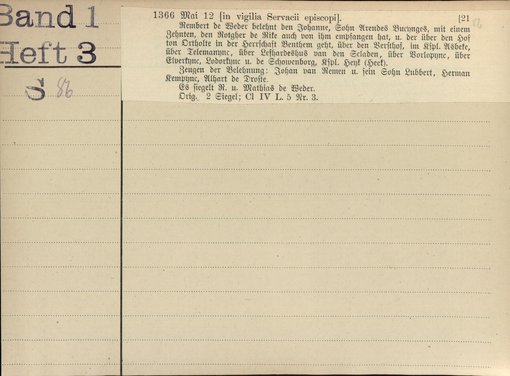 Band 1
Heft 3
S 86
1366 Mai 12 [in vigilia Servacii episcopi]. [21
Rembert de Weder belehnt den Johanne, Sohn Arendes Bucynges, mit einem
Zehnten, den Rotgher de Rike auch von ihm empfangen hat, u. der über den Hof
ton Ortholte in der Herrschaft Benthem geht, über den Versthof, im Kspl. Asbeke,
über Telemanync, über Leshardeshus van den Scladen, über Vorlopync, über
Elverkync, Lodorkync u. de Schowenborg, Kspl. Heyk (Heek).
Zeugen der Belehnung: Johan van Remen u. sein Sohn Lubbert, Herman
Kempync, Alhart de Droste.
Es siegelt R. u. Mathias de Weder.
Orig. 2 Siegel; Cl IV L. 5 Nr. 3.